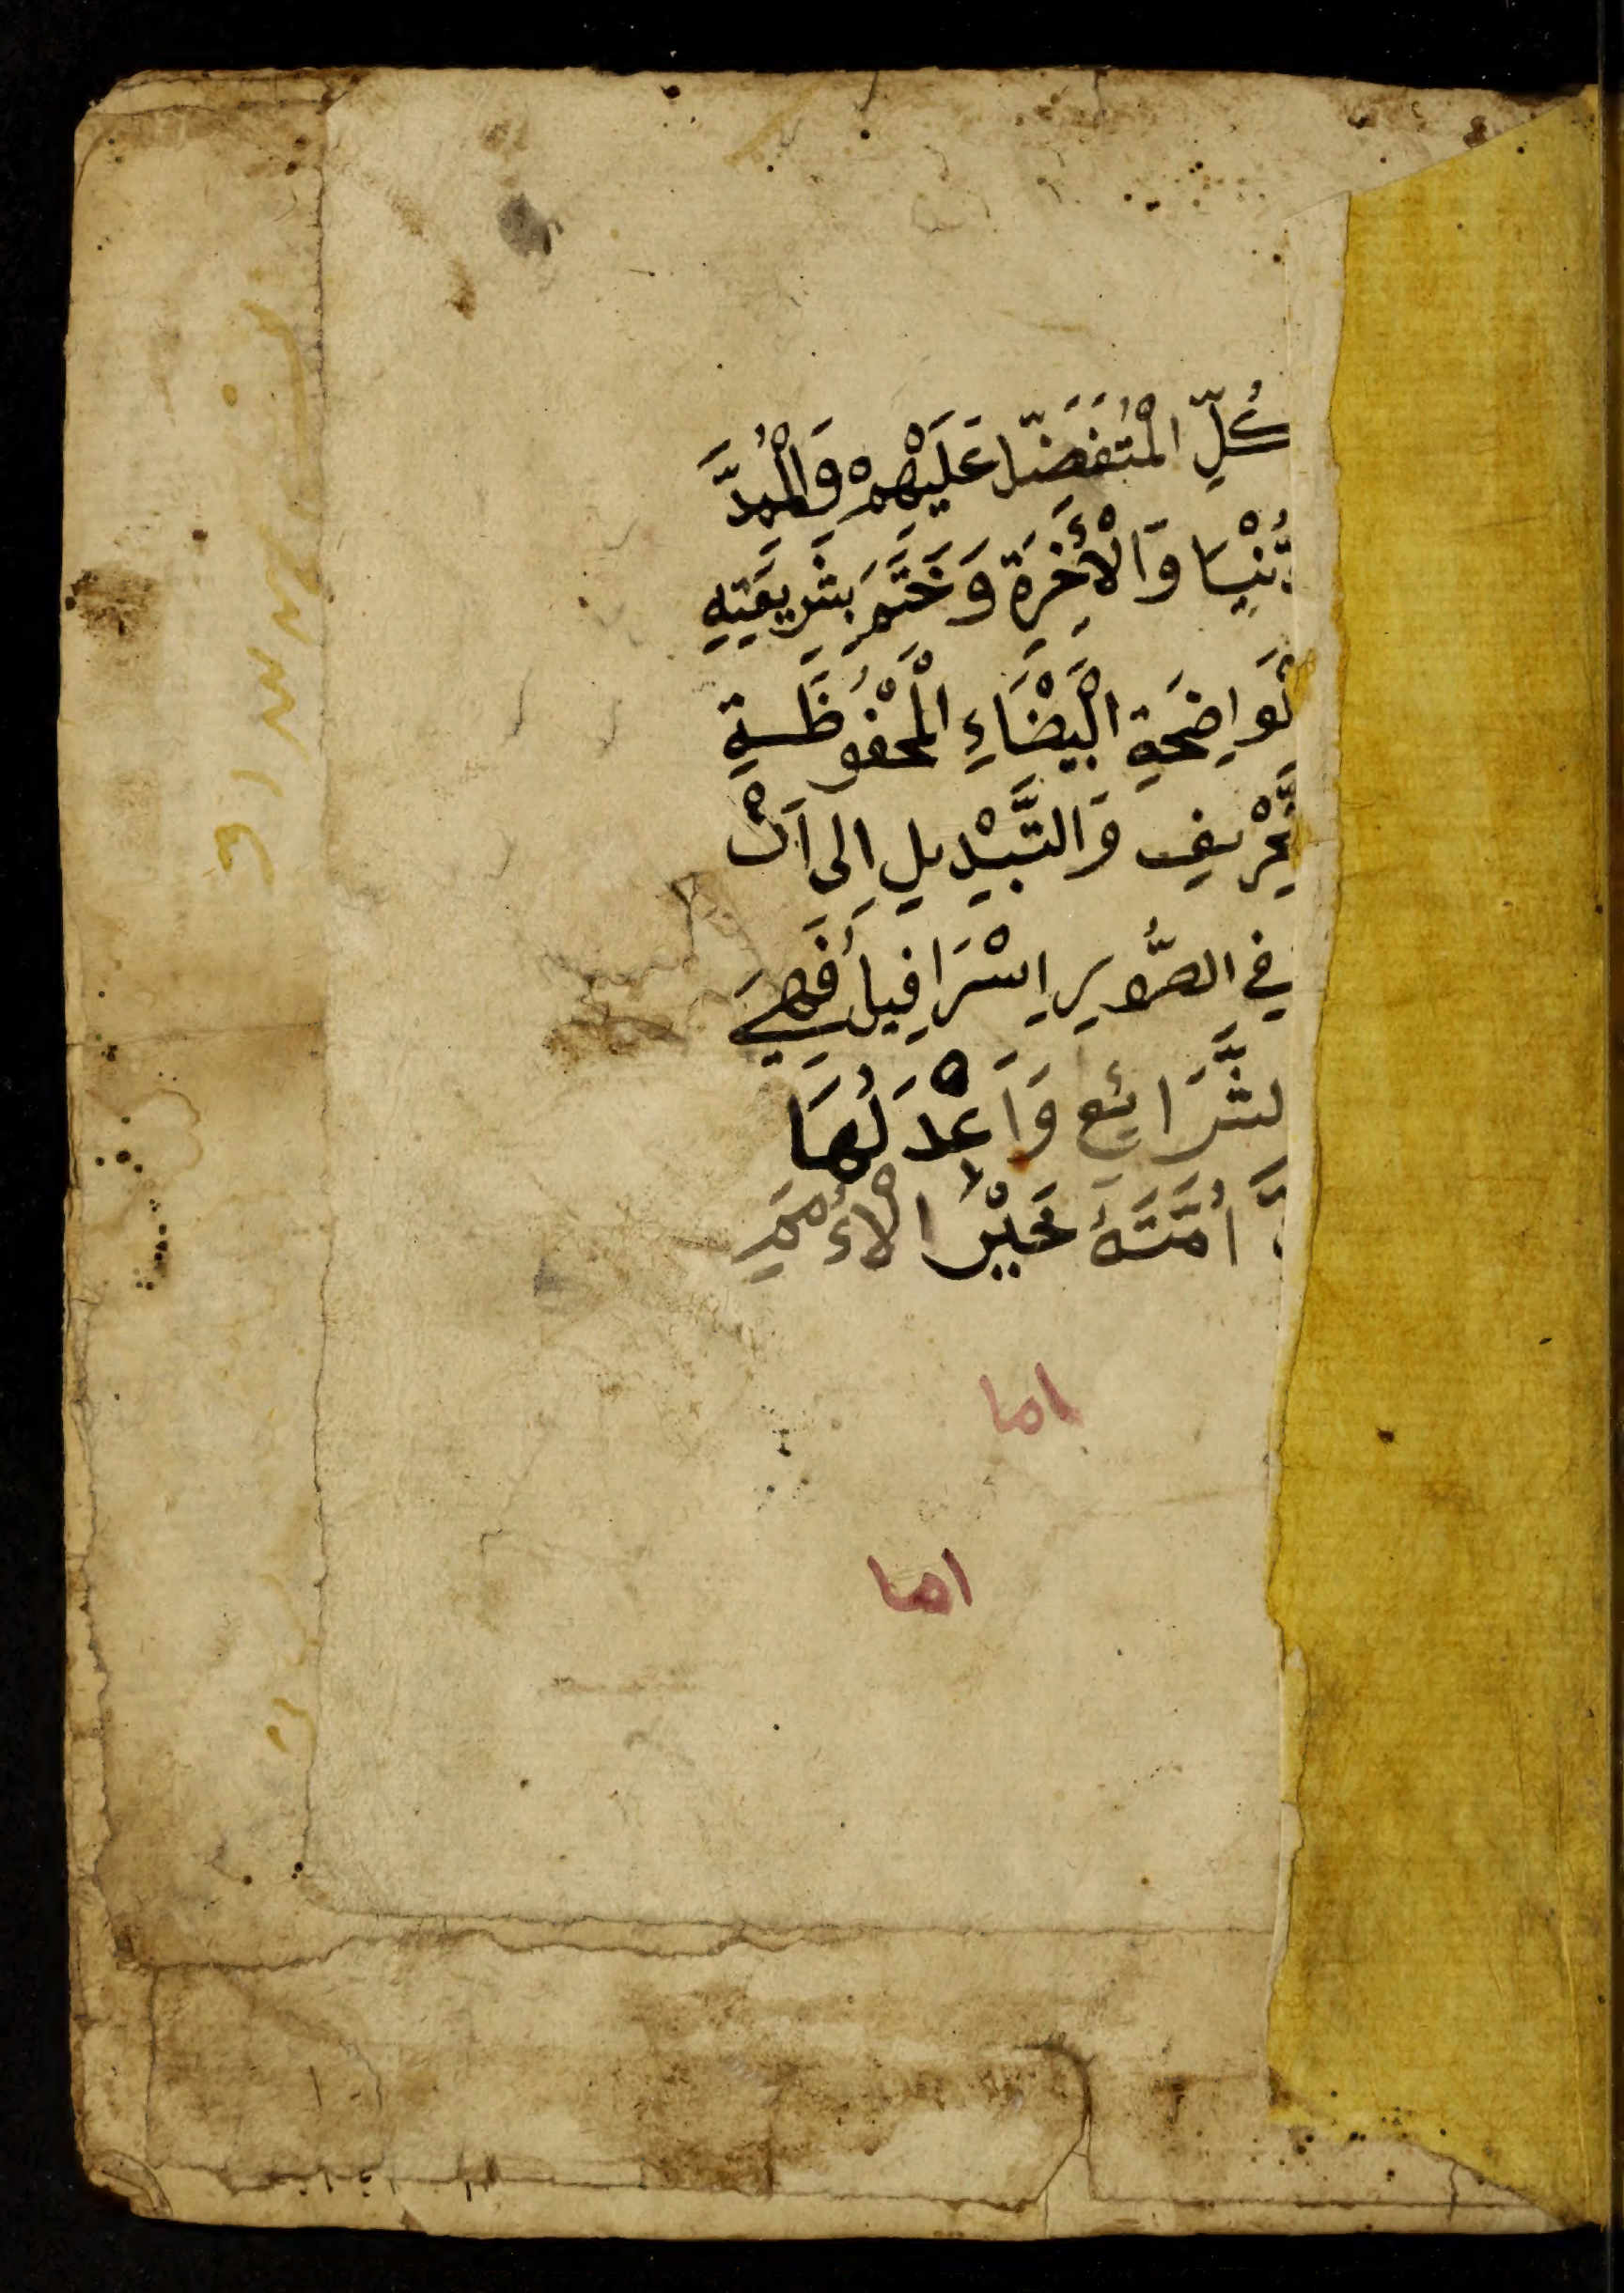 كُلِّ الْمُتَفَضَّلِ عَلَيْهِمْ وَالْمُمِدَّ
دُّنْيَا وَالْأَخِرَةِ وَخَتَمَ بِشَرِيعَتِهِ
لْوَاضِحَةِ الْبَيْضَاءِ الْمَحْفُوظَةِ
تَّحْرِيفِ وَالتَّبْدِيلِ اِلى اَنْ
فِي الصُّورِ اِسْرَافِيلُ فَهِيَ
لشَّرَائِعِ وَاَعْدَلُهَا
اُمَّتَهُ خَيْرَ الْأُمَمِ
اما
اما